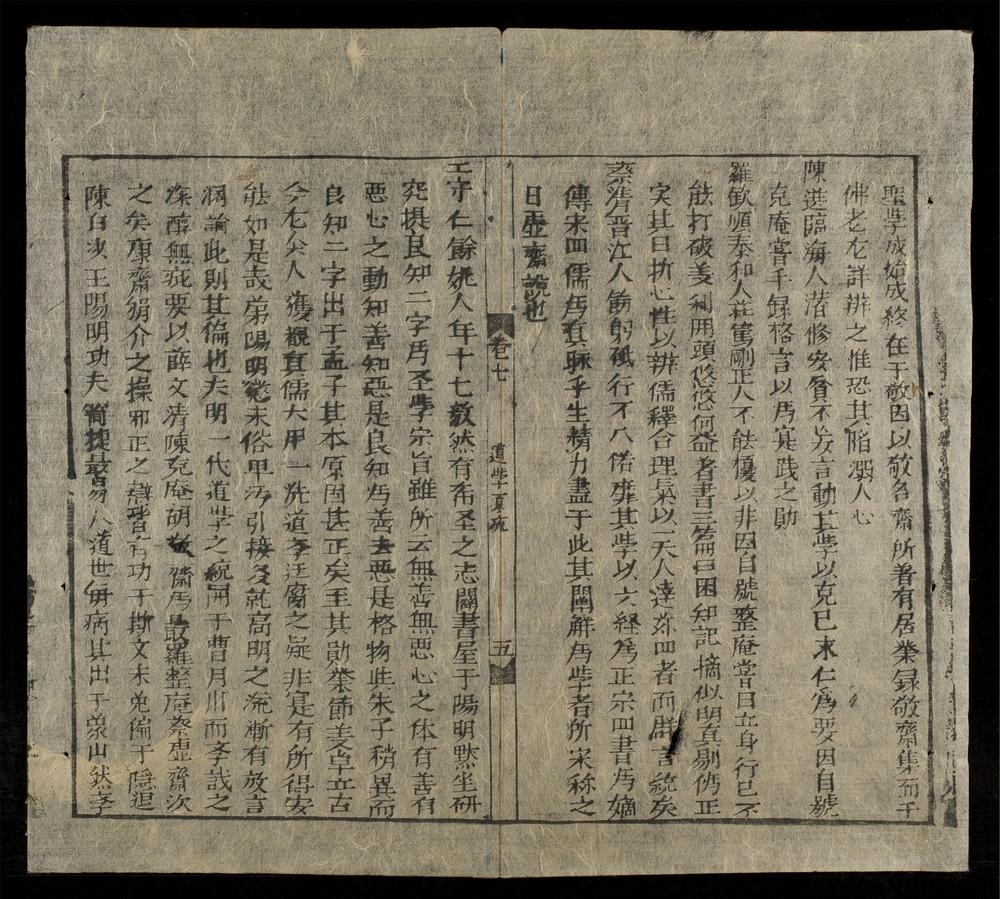 聖斈成始成終在于敬因以敬名齋所著有居業録敬齋集而于
佛老尤詳辨之惟恐其陷溺人心
陳選臨海人潜修安貧不妄言動其斈以克已求仁為要因自號
克庵嘗手録格言以為寔践之助
羅欽順泰和人莊篤剛正人不能優以非因自號整庵嘗曰立身行已不
能打破羙利関頭悠悠何益著書三篇曰困知記摘似明真剔偽正
実其曰析心性以辨儒釋合理氣以一天人達亦四者而庶言統矣
蔡清晋江人飭躬砥行不八偌靡其斈以六経為正宗四書為嫡
傳宋四儒為真脉乎生精力盡于此其闡觧為斈者所宋稌之
曰虚齋說也
卷七
道斈真䟽
五
王守仁餘姚人年十七毅然有希圣之志闢書屋于陽明黙坐研
究揭良知二字為圣斈宗旨雖所云無善無惡心之体有善有
惡心之動知善知惡是良知為善去惡是格物此朱子稍異而
良知二字出于孟子其本原固甚正矣至其勛業節羙卓立古
今左尖人獲觀真儒大甲一洗道李迂腐之疑非寔有所得安
能如是哉弟陽明憋末俗甲汚引接多就高明之流漸有放言
濶論此則其偹也夫明一代道斈之統開于曹月川而李誠之
深醇無疵要以薛文清陳克庵胡敬齋為最羅整庵蔡虚齋次
之矣康齋狷介之操邪正之辯皆有功于斯文未免偏于隠退
陳白沙王陽明功夫簡捷最易人道世毎病其出于象山然李